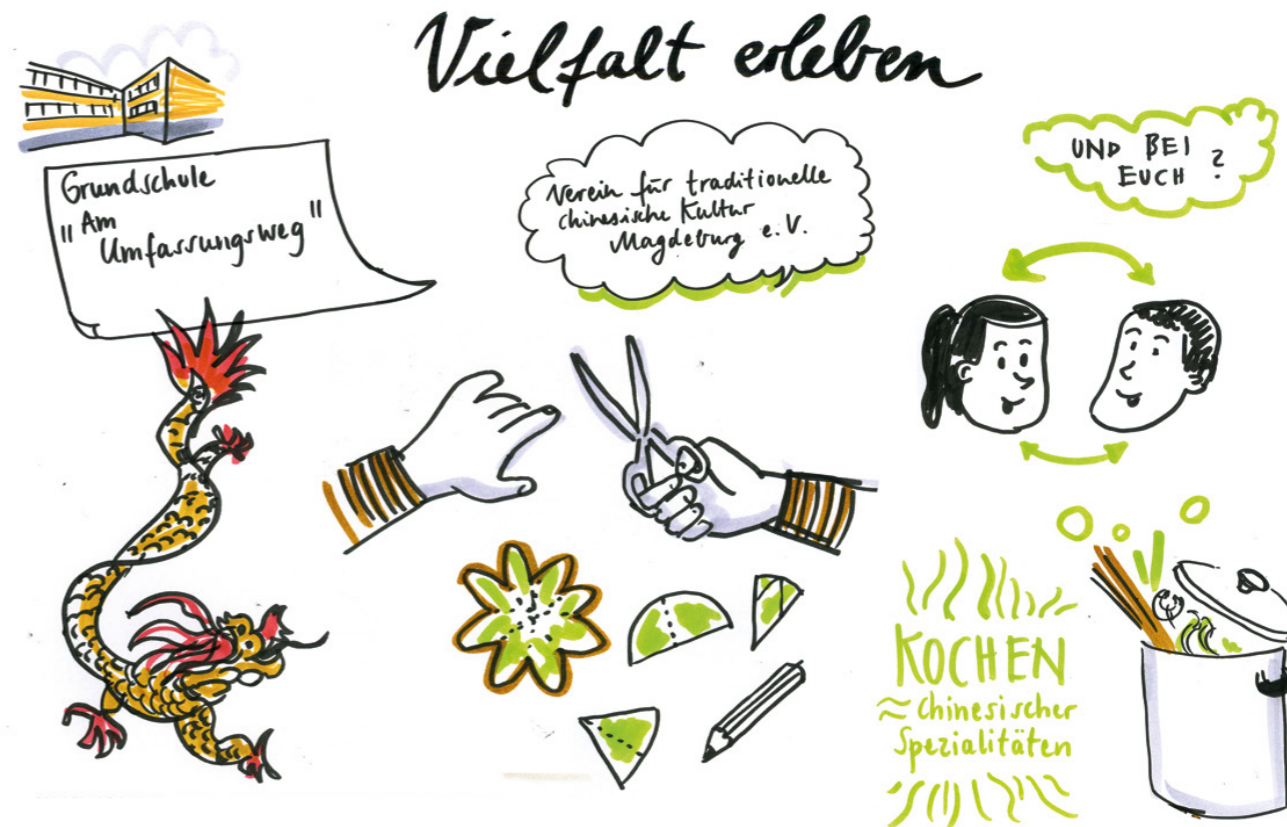 Vielfalt erleben
Grundschule
"Am
Umfassungsweg"
Verein für traditionelle
chinesische Kultur
Magdeburg e.V.
UND BEI
EUCH ?
KOCHEN
≈ Chinesischer
Spezialitäten